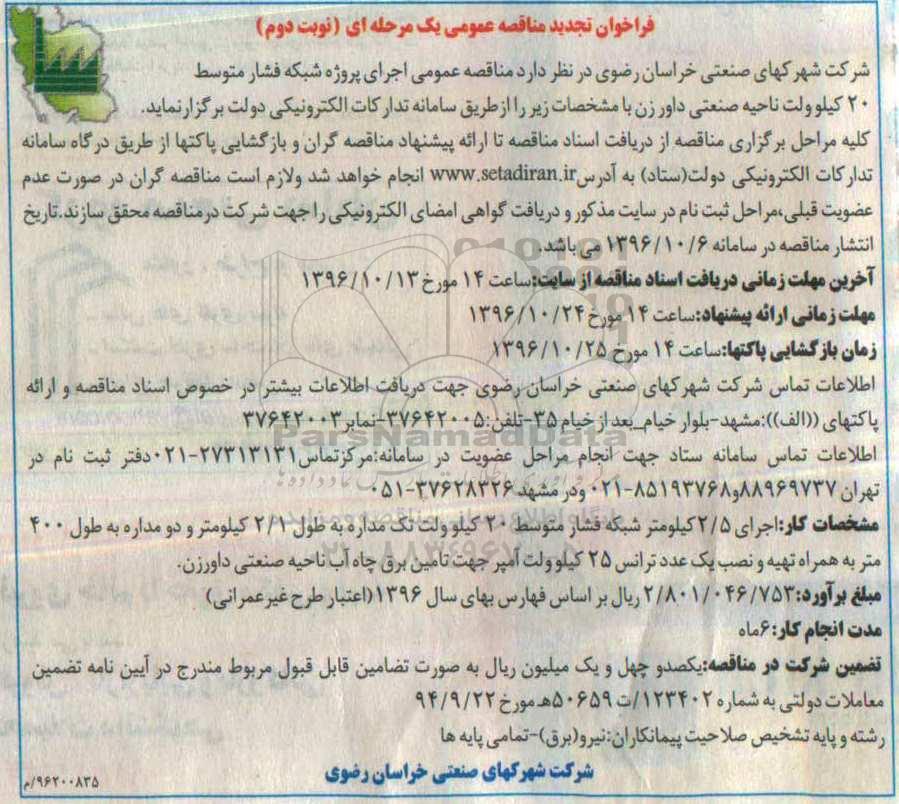 فراخوان تجدید مناقصه عمومی یک مرحله ای (نوبت دوم)
شرکت شهرکهای صنعتی خراسان رضوی در نظر دارد مناقصه عمومی اجرای پروژه شبکه فشار متوسط
۲۰ کیلوولت ناحیه صنعتی داورزن با مشخصات زیر را از طریق سامانه تدارکات الکترونیکی دولت برگزار نماید.
کلیه مراحل برگزاری مناقصه از دریافت اسناد مناقصه تا ارائه پیشنهاد مناقصه گران و بازگشایی پاکتها از طریق درگاه سامانه
تدارکات الکترونیکی دولت(ستاد) به آدرس www.setadiran.ir انجام خواهد شد ولازم است مناقصه گران در صورت عدم
عضویت قبلی،مراحل ثبت نام در سایت مذکور و دریافت گواهی امضای الکترونیکی را جهت شرکت در مناقصه محقق سازند.تاریخ
انتشار مناقصه در سامانه ۱۳۹۶/۱۰/۶ می باشد.
آخرین مهلت زمانی دریافت اسناد مناقصه از سایت:ساعت ۱۴ مورخ ۱۳۹۶/۱۰/۱۳
مهلت زمانی ارائه پیشنهاد:ساعت ۱۴ مورخ ۱۳۹۶/۱۰/۲۴
زمان بازگشایی پاکتها:ساعت ۱۴ مورخ ۱۳۹۶/۱۰/۲۵
اطلاعات تماس شرکت شهرکهای صنعتی خراسان رضوی جهت دریافت اطلاعات بیشتر در خصوص اسناد مناقصه و ارائه
پاکتهای ((الف)):مشهد-بلوار خیام_بعد از خیام ۳۵-تلفن:۳۷۶۴۲۰۰۵-نمابر۳۷۶۴۲۰۰۳
ParsNamadData
اطلاعات تماس سامانه ستاد جهت انجام مراحل عضویت در سامانه:مرکزتماس۲۷۳۱۳۱۳۱-۰۲۱دفتر ثبت نام در
تهران ۸۸۹۶۹۷۳۷و۸۵۱۹۳۷۶۸-۰۲۱ ودر مشهد ۳۷۶۲۸۳۲۶-۰۵۱
مشخصات کار:اجرای ۲/۵ کیلومتر شبکه فشار متوسط ۲۰ کیلو ولت تک مداره به طول ۲/۱ کیلومتر و دو مداره به طول ۴۰۰
متر به همراه تهیه و نصب یک عدد ترانس ۲۵ کیلوولت آمپر جهت تامین برق چاه آب ناحیه صنعتی داورزن.
مبلغ برآورد:۲/۸۰۱/۰۴۶/۷۵۳ ریال بر اساس فهارس بهای سال ۱۳۹۶(اعتبار طرح غیرعمرانی)
مدت انجام کار:۶ماه
تضمین شرکت در مناقصه:یکصدو چهل و یک میلیون ریال به صورت تضامین قابل قبول مربوط مندرج در آیین نامه تضمین
معاملات دولتی به شماره ۱۲۳۴۰۲/ت ۵۰۶۵۹هـ مورخ ۹۴/۹/۲۲
رشته و پایه تشخیص صلاحیت پیمانکاران:نیرو(برق)-تمامی پایه ها
شرکت شهرکهای صنعتی خراسان رضوی
۹۶۲۰۰۸۳۵/م